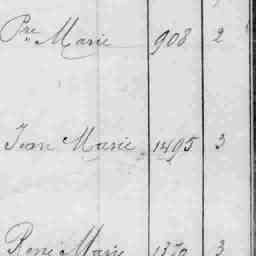 Pre Marie 908 2
Jean Marie 1495 3
Rene Marie 1370 3